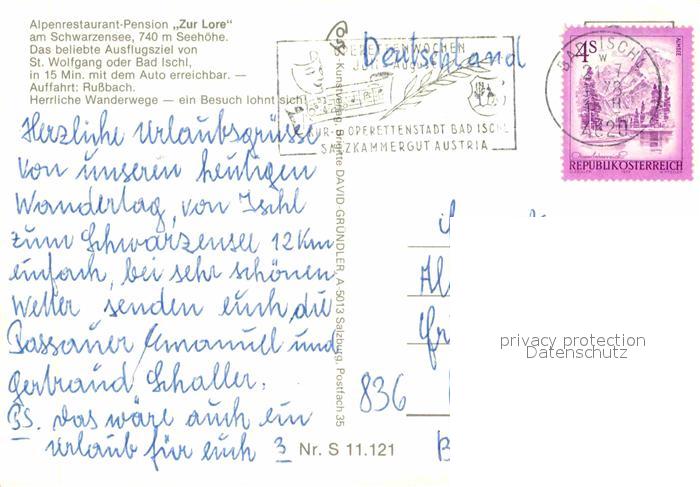 Alpenrestaurant-Pension „Zur Lore"
am Schwarzensee, 740 m Seehöhe.
Das beliebte Ausflugsziel von
St. Wolfgang oder Bad Ischl,
in 15 Min. mit dem Auto erreichbar. —
Auffahrt: Rußbach.
Herrliche Wanderwege — ein Besuch lohnt sich!
Herzliche Urlaubsgrüsse
von unseren heutigen
Wandertag, von Ischl
zum Schwarzensee 12 Km
einfach, bei sehr schönen
Wetter senden euch, die
Passauer Emanuel und
Gertraud Schaller.
PS. das wäre auch ein
Urlaub für euch 3
Kunstverlag Brigitte DAVID-GRÜNDLER, A-5013 Salzburg, Postfach 35
Nr. S 11.121
OPERETTENWOCHEN
KUR- OPERETTENSTADT BAD ISCHL
SALZKAMMERGUT AUSTRIA
Deutschland
BAD ISCHL
4820
4 S
ALMSEE
REPUBLIK ÖSTERREICH
Al
836
B
privacy protection
Datenschutz